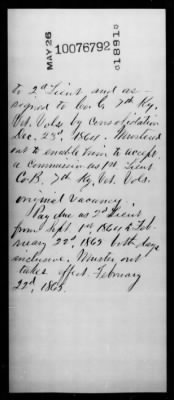 MAY 26
10076792
1891
to 2d Lieut and as-
signed to Co. C, 7th Ky.
Vet. Vols by Consolidation
Dec. 23d, 1864. Mustered
out to enable him to accept
a commission as 1st Lieut
Co B, 7th Ky. Vet. Vols.
original vacancy.
Pay due as 2d Lieut
from Sept 1st, 1864 to Feb-
ruary 22d, 1865 both days
inclusive. Muster out
takes effect February
22d, 1865.